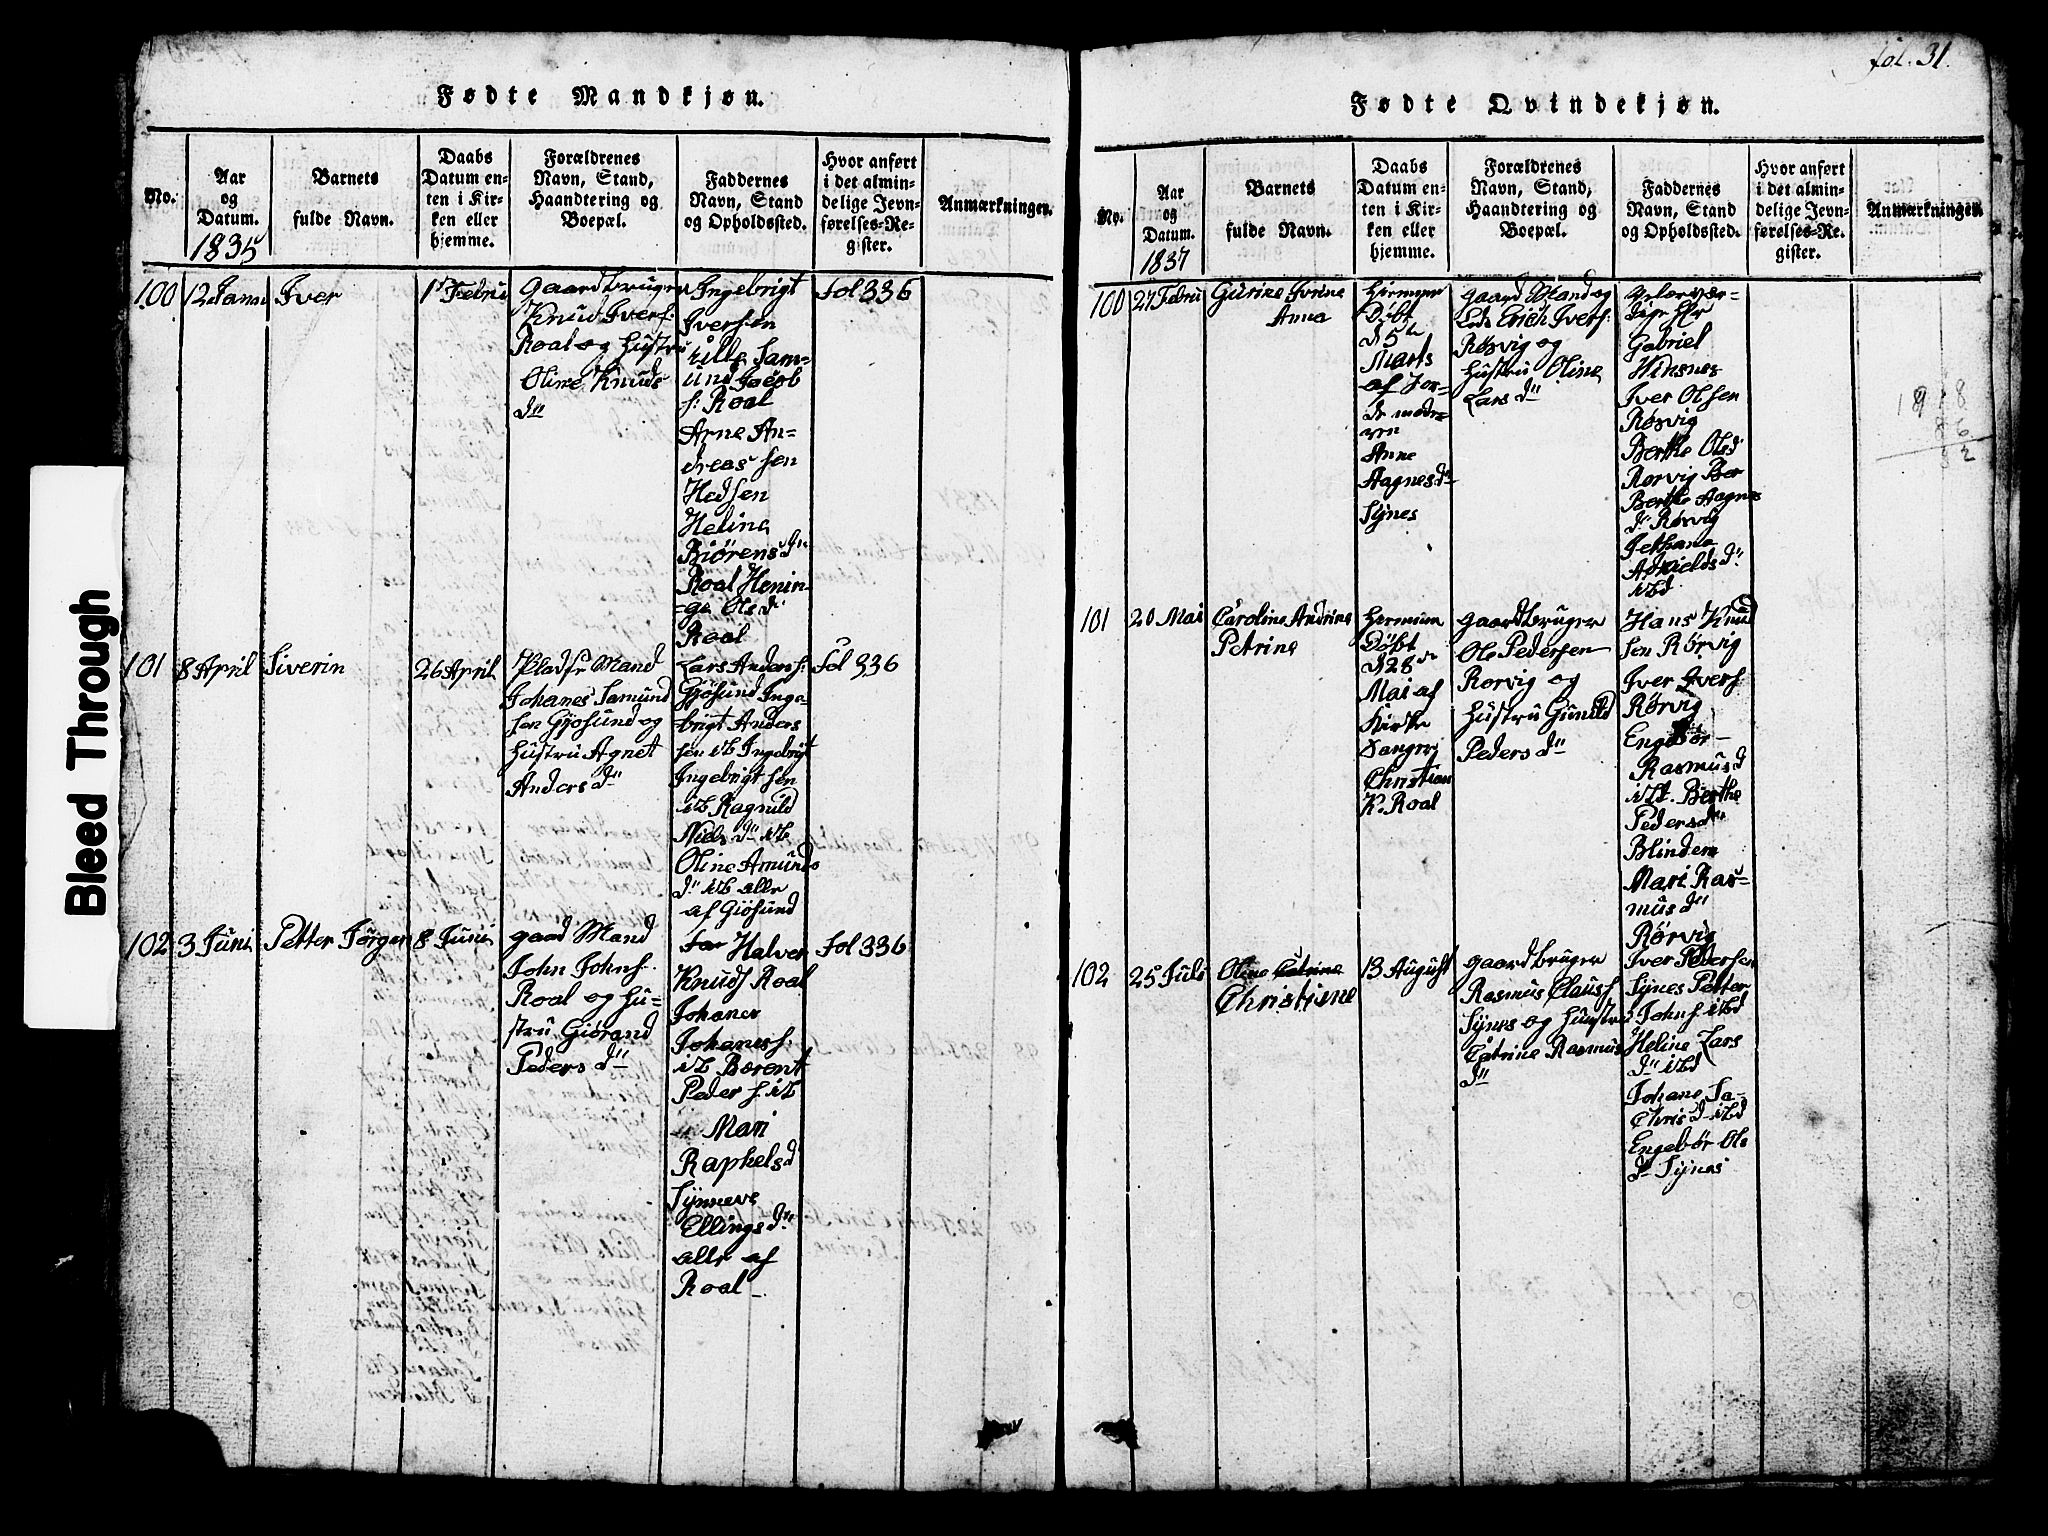 fol. 31.
Bleed Through
Fødte Mandkjøn.
No.
Aar
og
Datum.
1835
Barnets
fulde Navn.
Daabs
Datum en-
ten i Kir-
ken eller
hjemme.
Forældrenes
Navn, Stand,
Haandtering og
Boepæl.
Faddernes
Navn, Stand
og Opholdssted.
Hvor anført
i det almin-
delige Jevn-
førelses-Re-
gister.
Anmærkninger.
100
12 Janu
Iver
1 Febru
Gaardbruger
Knud Ivers:
Roal og Hustru
Oline Knuds
d"
Ingebrigt
Iversen
Sam-
und Jacob
s: Roal
Arne An-
dreas sen
Hedsen
Heline
Biørens d"
Roal Henin-
ge Ols d"
Roal
fol 336
101
8 April
Siverin
26 April
Pladsr Mand
Johanes Samund
sen Gjøsund og
Hustru Agnet
Anders d"
Lars Anders:
Gjøsund Inge-
brigt Anders
sen ib Ingebrigt
Ingebrigt sen
ib Ragnild
Niels d" ib
Oline Amunds
d" ib alle
af Giøsund
fol 336
102
3 Juni
Petter Jørgen
8 Juni
gaard Mand
John Johns.
Roal og Hu-
stru Giørand
Peders d"
Halver
Knuds Roal
Johanes
Johaness:
ib Berent
Peder s. ib
Mari
Raphels d
Synneve
Ellings d"
alle af
Roal
fol 336
Fødte Qvindekjøn.
No.
Aar
og
Datum.
1837
Barnets
fulde Navn.
Daabs
Datum en-
ten i Kir-
ken eller
hjemme.
Forældrenes
Navn, Stand,
Haandtering og
Boepæl.
Faddernes
Navn, Stand
og Opholdssted.
Hvor anført
i det almin-
delige Jevn-
førelses-Re-
gister.
Anmærkninger.
100
27 Febru
Gurine Ivrine
Anna
Hiemme
Døbt
d 5te
Marts
af Jor-
de modr-
ren
Anne
Aagnes d"
Synes
gaard Mand og
Erich Ivers:
Røsvig og
Hustru Oline
Lars d"
Hr
Gabriel
Hinsnes
Iver Olsen
Røsvig
Berthe Ols d
Rørvig Ber
Berthe Aagnes
d" Rørvig
d"
ibd
101
20 Mai
Caroline Andrine
Petrine
Hiemme
Døbt
d 28de
Mai af
Kirke
Sanger
Christian
K. Roal
gaardbruger
Ole Pedersen
Rørvig og
Hustru Gunild
Peders d"
Hans Knud
sen Rørvig
Iver Ivers
Rørvig
Engebør
Rasmus d
ibd. Berthe
Peders d"
Blindem
Mari Ras-
mus d"
Rørvig
102
25 Juli
Oline Catrine
Christiane
13 August
gaardbruger
Rasmus Clauss
Synes og Hustru
Catrine Rasmus
d"
Iver Pedersen
Synes Petter
Johns ibd
Heline Lars
d" ibd
Johane Sa-
Chris d ibd
Engebør Ols
d" Synes